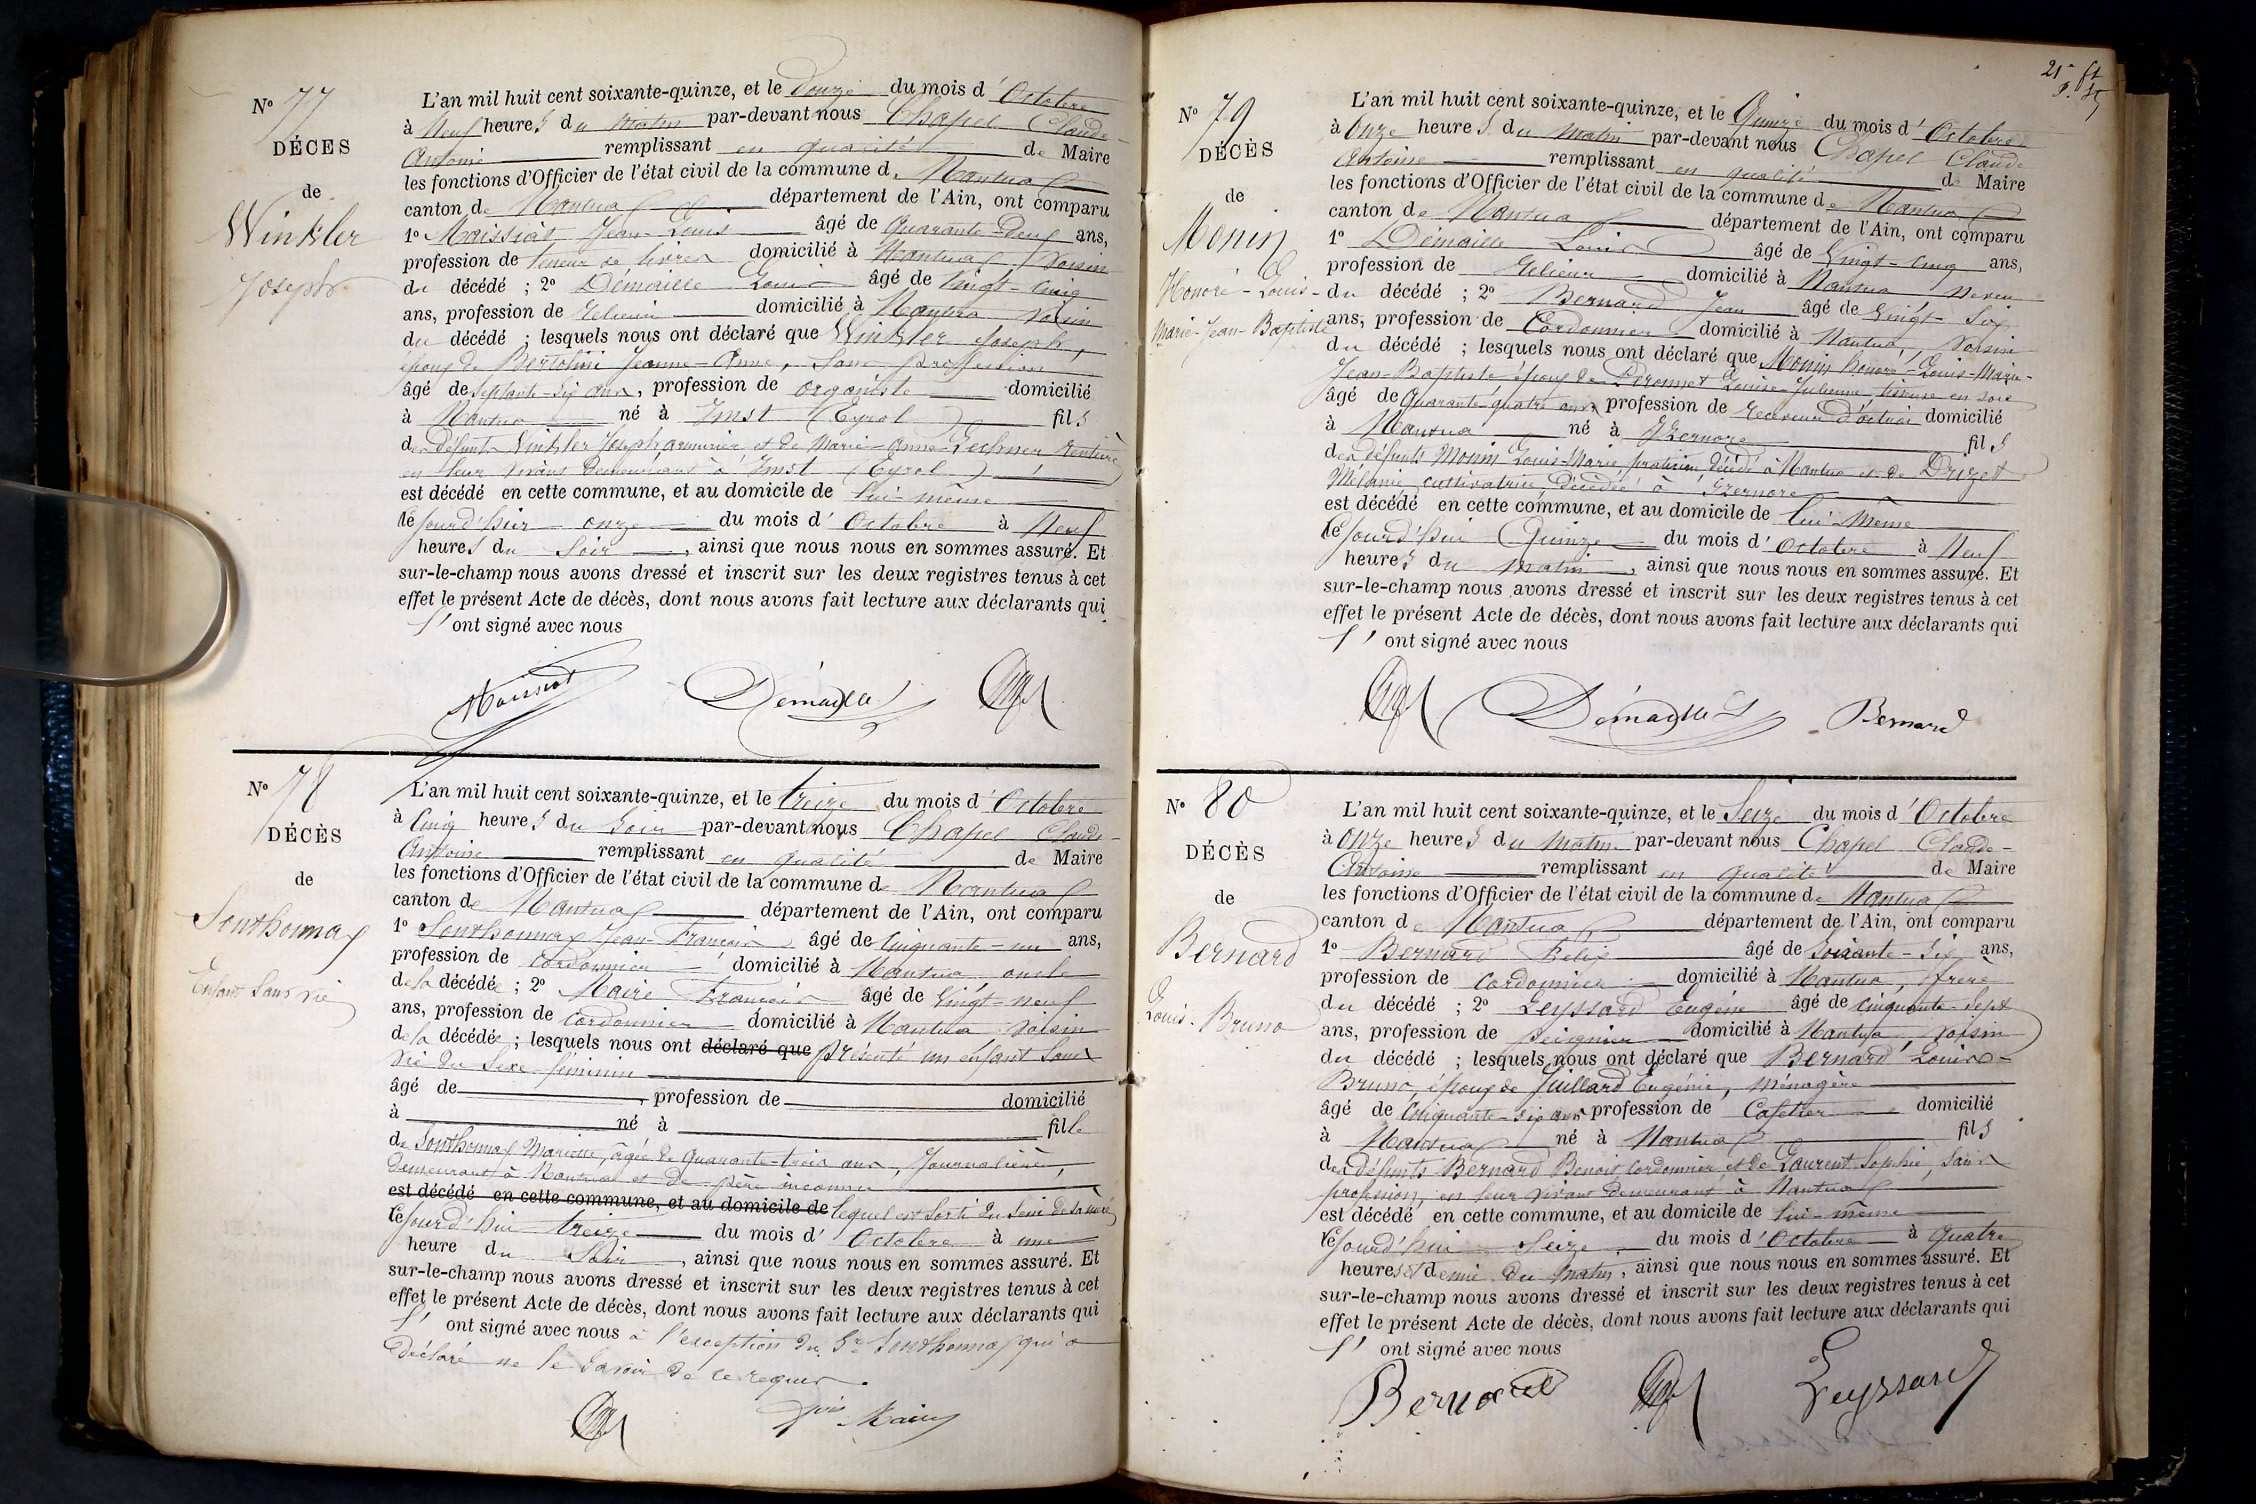 N° 77
DÉCES
de
Winkler
Joseph
L'an mil huit cent soixante-quinze, et le Douze du mois d' Octobre
à Neuf heures du Matin par-devant nous Chapel Claude-
Antoine remplissant en qualité de Maire
les fonctions d'Officier de l'état civil de la commune de Nantua
canton de Nantua département de l'Ain, ont comparu
1° Maissiat Jean-Louis âgé de quarante-deux ans,
profession de teneur de livres domicilié à Nantua, Voisin
du décédé ; 2° Démaille Louis âgé de Vingt-cinq
ans, profession de Relieur domicilié à Nantua Voisin
du décédé ; lesquels nous ont déclaré que Winkler Joseph,
époux de Bertolini Jeanne-Anne, Sans profession
âgé de septante-six ans, profession de organiste domicilié
à Nantua né à Imst (Tyrol) fils
des défunts Winkler Joseph armurier et de Marie-Anne Lechner rentière
en leur vivant Demeurant à Imst (Tyrol)
est décédé en cette commune, et au domicile de lui-même
le Jourd'hui onze du mois d' Octobre à Neuf
heures du Soir, ainsi que nous nous en sommes assuré. Et
sur-le-champ nous avons dressé et inscrit sur les deux registres tenus à cet
effet le présent Acte de décès, dont nous avons fait lecture aux déclarants qui
l' ont signé avec nous
Maissiat Démaille
N° 78
DÉCÈS
de
Sonthonnax
Enfant Sans vie
L'an mil huit cent soixante-quinze, et le treize du mois d' Octobre
à Cinq heures du Soir par-devant nous Chapel Claude-
Antoine remplissant en qualité de Maire
les fonctions d'Officier de l'état civil de la commune de Nantua
canton de Nantua département de l'Ain, ont comparu
1° Sonthonnax Jean-François âgé de Cinquante-un ans,
profession de Cordonnier domicilié à Nantua, oncle
de la décédée ; 2° Maire François âgé de Vingt-neuf
ans, profession de Cordonnier domicilié à Nantua Voisin
de la décédée ; lesquels nous ont déclaré que présenté un enfant Sans
Vie du Sexe féminin
âgé de , profession de domicilié
à né à fille
de Sonthonnax Mariette, âgée de quarante-trois ans, Journalière,
demeurant à Nantua et de père inconnu
est décédé en cette commune, et au domicile de lequel est Sorti du Sein de sa mère
le Jourd'hui treize du mois d' Octobre à une
heure du Soir, ainsi que nous nous en sommes assuré. Et
sur-le-champ nous avons dressé et inscrit sur les deux registres tenus à cet
effet le présent Acte de décès, dont nous avons fait lecture aux déclarants qui
l' ont signé avec nous à l'exception du Sr Sonthonnax qui a
déclaré ne le Savoir de ce requis.
fçois Maire
N° 79
DÉCÈS
de
Monin
Honoré-Louis-
Marie-Jean-Baptiste
L'an mil huit cent soixante-quinze, et le Quinze du mois d' Octobre
à Onze heures du Matin par-devant nous Chapel Claude
Antoine remplissant en qualité de Maire
les fonctions d'Officier de l'état civil de la commune de Nantua
canton de Nantua département de l'Ain, ont comparu
1° Démaille Louis âgé de Vingt-cinq ans,
profession de Relieur domicilié à Nantua neveu
du décédé ; 2° Bernard Jean âgé de Vingt-Six
ans, profession de Cordonnier domicilié à Nantua, Voisin
du décédé ; lesquels nous ont déclaré que Monin honoré-Louis-Marie-
Jean-Baptiste époux de Peronnet Louise-Julienne, tisseuse en soie
âgé de quarante-quatre ans, profession de receveur d'octroi domicilié
à Nantua né à Izernore fils
des défunts Monin Louis-Marie, praticien décédé à Nantua et de Druzet
Mélanie, cultivatrice, décédée à Izernore
est décédé en cette commune, et au domicile de lui-même
le Jourd'hui Quinze du mois d' Octobre à Neuf
heures du Matin, ainsi que nous nous en sommes assuré. Et
sur-le-champ nous avons dressé et inscrit sur les deux registres tenus à cet
effet le présent Acte de décès, dont nous avons fait lecture aux déclarants qui
l' ont signé avec nous
Démaille Bernard
N° 80
DÉCÈS
de
Bernard
Louis-Bruno
L'an mil huit cent soixante-quinze, et le Seize du mois d' Octobre
à onze heures du Matin par-devant nous Chapel Claude-
Antoine remplissant en qualité de Maire
les fonctions d'Officier de l'état civil de la commune de Nantua
canton de Nantua département de l'Ain, ont comparu
1° Bernard Félix âgé de Soixante-Six ans,
profession de Cordonnier domicilié à Nantua, frère
du décédé ; 2° Leyssard Eugène âgé de cinquante-Sept
ans, profession de peignier domicilié à Nantua, Voisin
du décédé ; lesquels nous ont déclaré que Bernard Louis-
Bruno, époux de Juillard Eugénie, Ménagère
âgé de Cinquante-six ans profession de Cafetier domicilié
à Nantua né à Nantua fils
des défunts Bernard Benoit Cordonnier et de Laurent Sophie, Sans
profession, en leur vivant Demeurant à Nantua
est décédé en cette commune, et au domicile de lui-même
le Jourd'hui Seize du mois d' Octobre à quatre
heures et demie du Matin, ainsi que nous nous en sommes assuré. Et
sur-le-champ nous avons dressé et inscrit sur les deux registres tenus à cet
effet le présent Acte de décès, dont nous avons fait lecture aux déclarants qui
l' ont signé avec nous
Bernard Leyssard